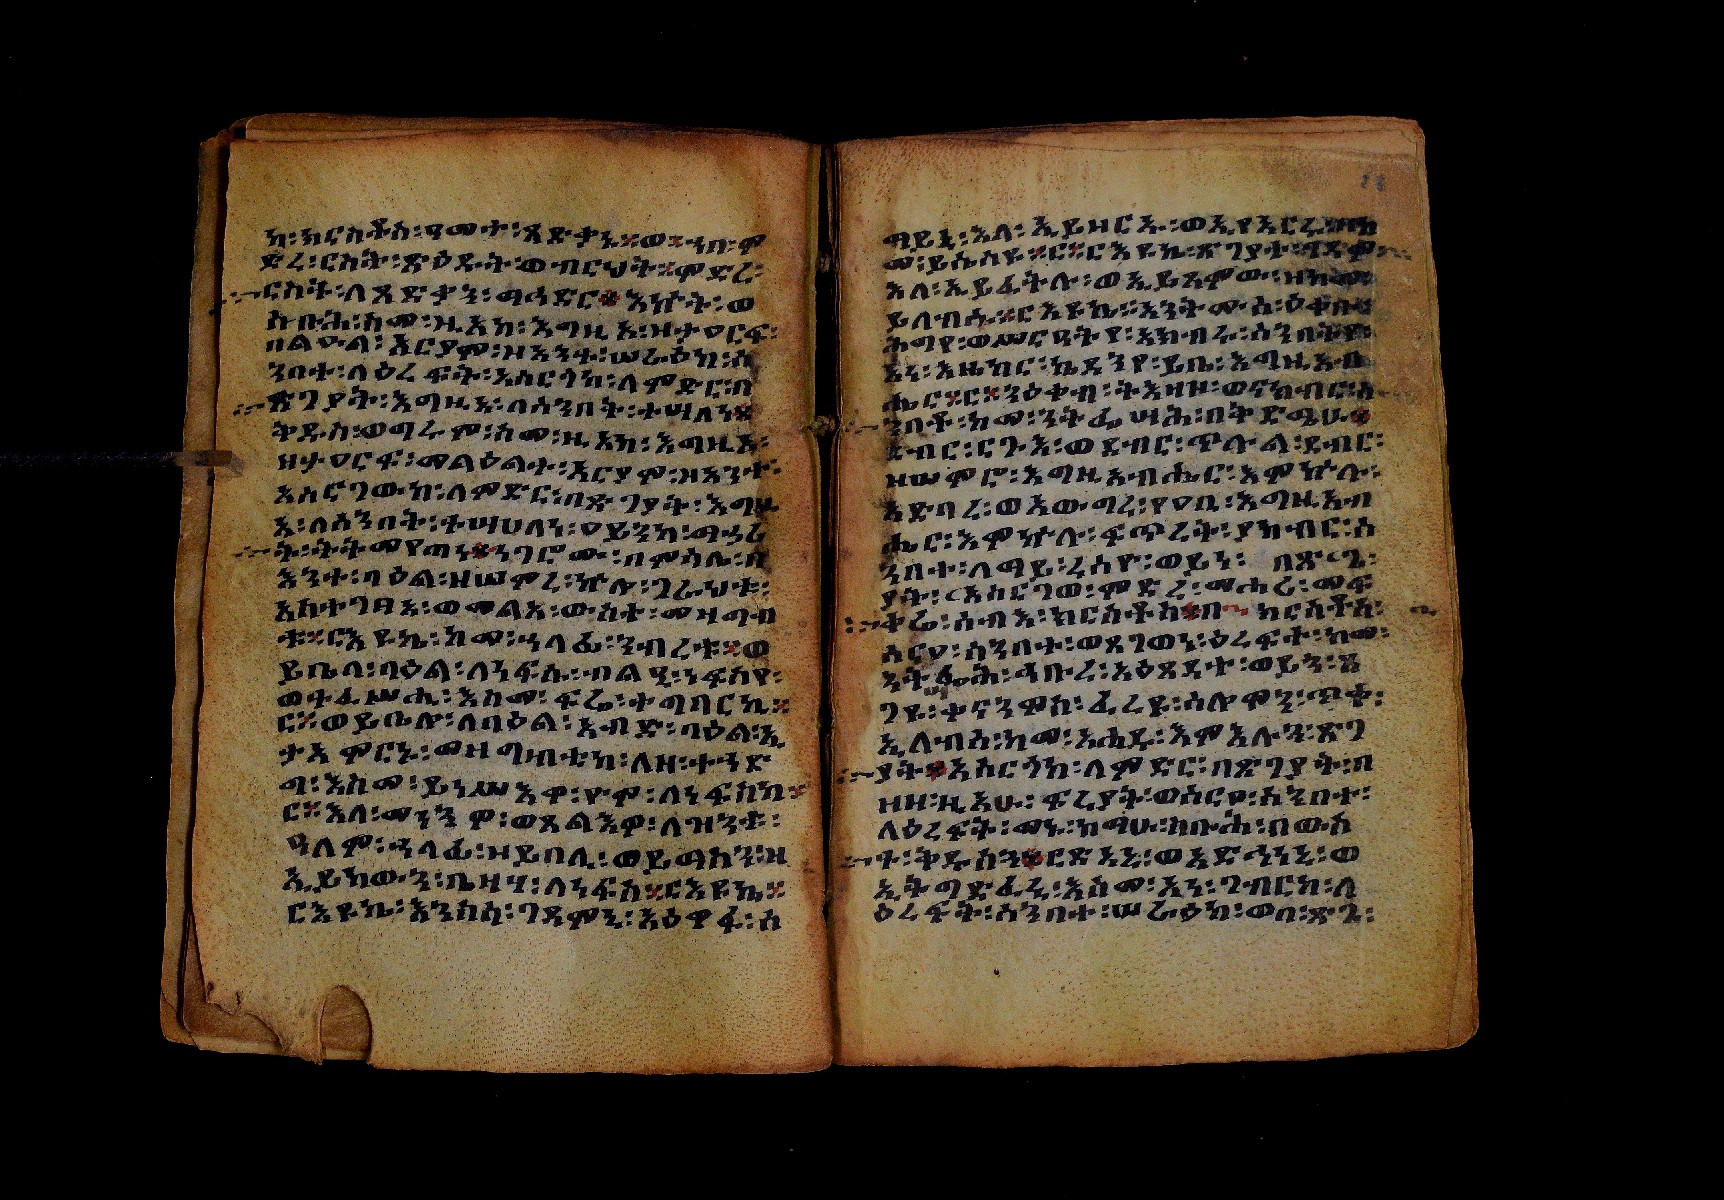 ክ፡ክርስቶስ፡ዓመተ፡ጻድቃኒ፨ወ፨ንበ፡ም
ድረ፡ርስት፡ጽዕዱት፡ወብርህት፨ምድረ፡
ርስት፡ለጻድቃን፡ማኅደር፨አኰት፡ወ
ስብሐ፡ስመ፡ዚአከ፡እግዚአ፡ዘታዐርፍ፡
በልዑል፡አርያም፡ዘአንተ፡ሠራዕከ፡ሰ
ንበተ፡ለዕረፍት፡አሰርጎከ፡ለምድር፡በ
ጽጌያት፡እግዚኦ፡ለሰንበት፡ተሣሀለነ፨
ቅዱስ፡ወግሩም፡ስመ፡ዚአከ፡እግዚኦ፡
ዘታዐርፍ፡መልዕልተ፡አርያም፡ዘአንተ፡
አሰርገውከ፡ለምድር፡በጽጌያት፡እግዚ
ኦ፡ለሰንበት፡ተሣሀለነ፡ዐይንከ፡ማኅረ
ት፡ትትመየጠነ፨ነገሮሙ፡በምሳሌ፡በ
እንተ፡ባዕል፡ዘሠምረ፡ኵሉ፡ገራህቱ፡
አስተጋብአ፡ወመልአ፡ውስተ፡መዛግብ
ቱ፨ርእዩኬ፡ከመ፡ኃላፊ፡ንብረቱ፨ወ
ይቤላ፡ባዕል፡ለነፍሱ፡ብልዒ፡ነፍስየ፡
ወተፈሥሒ፡እስመ፡ፍሬ፡ተግባርኪ፨
ር፨ወይቤሎ፡ለባዕል፡አብድ፡ባዕል፡ኢ
ታእምርኑ፡መዛግብቲከ፡ለዘ፡ተኀድ
ግ፡እስመ፡ይነሥእዋ፡ዮም፡ለነፍስከ፨
ር፨አለ፡መነንዎ፡ወጸልእዎ፡ለዝንቱ፡
ዓለም፡ኃላፊ፡ዘይበሊ፡ወይማስን፡ዘ
ኢይከውን፡ቤዛሃ፡ለነፍስ፨ርእዩኬ፨
ርእዩኬ፡እንስሳ፡ገዳምኒ፡አዕዋፋ፡ሰ
ማይኒ፡እለ፡ኢይዘርኡ፡ወኢየአርሩ
አለ፡ኢይፈትሉ፡ወኢይእምው
ይለብሱ፨ርእዩኬ፡እንተ
ሐግየ፡ወሠርዓትየ፡እክብሩ፡ሰንበትየ፡
እነ፡እዜከር፡ኪዳንየ፡ይቤ፡እግዚአብ
ሔር፨ር፨ንዕቀብ፡ትእዛዘ፡ወናክብር፡ሰ
ንበቶ፡ከመ፡ንትፌሣሕ፡በትድማሁ፨
ደብር፡ርጉእ፡ወደብር፡ጥሉል፡ደብር፡
ዘሠምሮ፡እግዚአብሔር፡እምኵሉ፡
አድባረ፡ወአውግረ፡የዐቢ፡እግዚአብ
ሔር፡እምኵሉ፡ፍጥረት፡ያከብር፡ሰ
ንበተ፡ለማይ፡ረሰዮ፡ወይነ፡ በጽጌ፡
ያት፡አሰርገወ፡ምድረ፡መሐሪ፡መፍ
ቀሬ፡ሰብእ፡ክርስቶስ፨በ ክርስቶስ፡
ሰርዐ፡ሰንበተ፡ወጸገወነ፡ዕረፍተ፡ከመ፡
ንትፌሣሕ፡ኅቡረ፡አዕጻዳተ፡ወይን፡ጸ
ገዩ፡ቀናንሞስ፡ፈረዩ፡ሰሎሞን፡ጥቀ፡
ኢለብሰ፡ከመ፡አሐዱ፡እምእሉን፡ጽጌ
ያት፨አሰርጎከ፡ለምድር፡በጽጌያት፡በ
ዘዘ፡ዚአሁ፡ፍሬያት፡ወሰርዐ፡ሰንበተ፡
ለዕረፍት፡መኑ፡ከማሁ፡ስቡሕ፡በውስ
ተ፡ቅዱሳን፨ርድአኒ፡ወአድኅነኒ፡ወ
ኢትግድፈኒ፡እስመ፡አነ፡ገብርከ፡ለ
ዕረፍት፡ሰንበተ፡ሠራዕከ፡ወበ፡ጽጌ፡